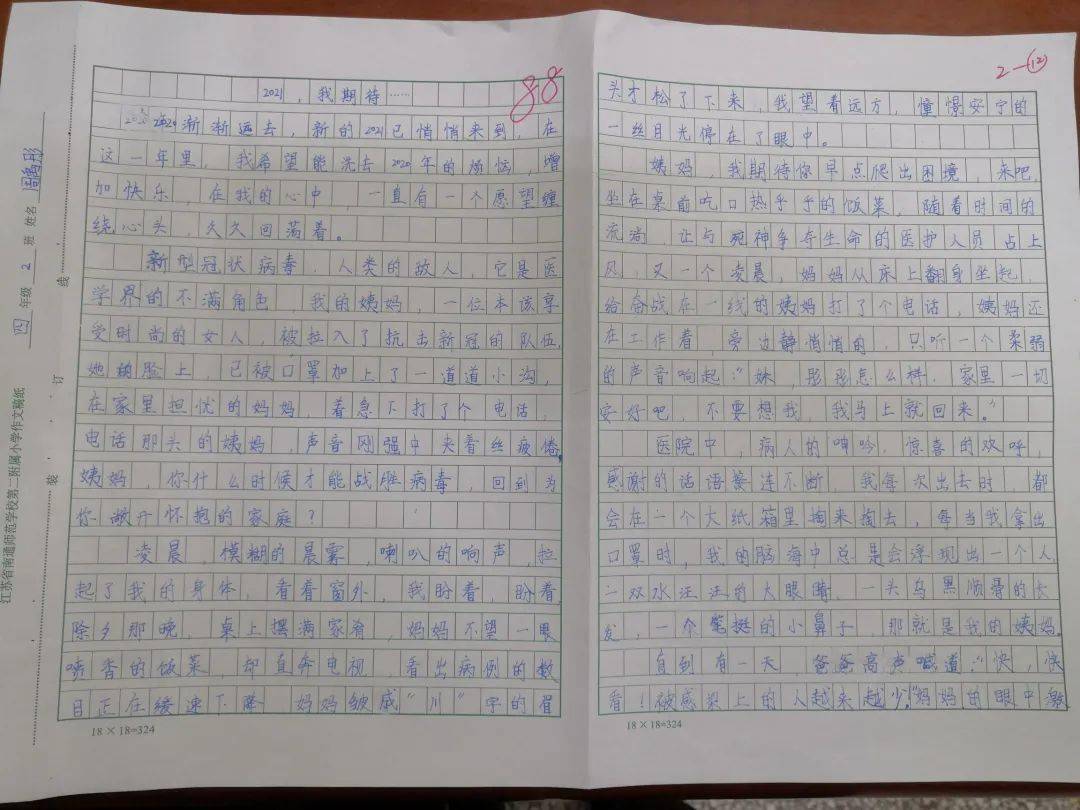 88
2021，我期待……
2020渐渐远去，新的2021已悄悄来到，在
这一年里，我希望能洗去2020年的烦恼，增
加快乐，在我的心中，一直有一个愿望缠
绕心头，久久回荡着。
新型冠状病毒，人类的敌人，它是医
学界的不满角色，我的姨妈，一位本该享
受时尚的女人，被拉入了抗击新冠的队伍，
她的脸上，已被口罩加上了一道道小沟，
在家里担忧的妈妈，着急下打了个电话，
电话那头的姨妈，声音刚强中夹着丝疲倦，
姨妈，你什么时候才能战胜病毒，回到为
你敞开怀抱的家庭？
凌晨，模糊的晨雾，喇叭的响声，拉
起了我的身体，看着窗外，我盼着，盼着，
除夕那晚，桌上摆满家肴，妈妈不望一眼
喷香的饭菜，却直奔电视，看出病例的数
目正在缓速下降，妈妈皱成“川”字的眉
18×18=324
江苏省南通师范学校第二附属小学作文稿纸
四 年级 2 班 姓名
装 订 线
2—12
头才松了下来，我望着远方，憧憬安宁的
一丝目光停在了眼中。
姨妈，我期待你早点爬出困境，来吧，
坐在桌前吃口热乎乎的饭菜，随着时间的
流淌，让与死神争夺生命的医护人员占上
风，又一个凌晨，妈妈从床上翻身坐起，
给奋战在一线的姨妈打了个电话，姨妈还
在工作着，旁边静悄悄的，只听一个柔弱
的声音响起：“妹，彤彤怎么样，家里一切
安好吧，不要想我，我马上就回来。”
医院中，病人的呻吟，惊喜的欢呼，
感谢的话语接连不断，我每次出去时，都
会在一个大纸箱里掏来掏去，每当我拿出
口罩时，我的脑海中总是会浮现出一个人，
二双水汪汪的大眼睛，一头乌黑顺滑的长
发，一个笔挺的小鼻子，那就是我的姨妈。
直到有一天，爸爸高声喊道：“快，快
看！被感染上的人越来越少。”妈妈的眼中激
18×18=324